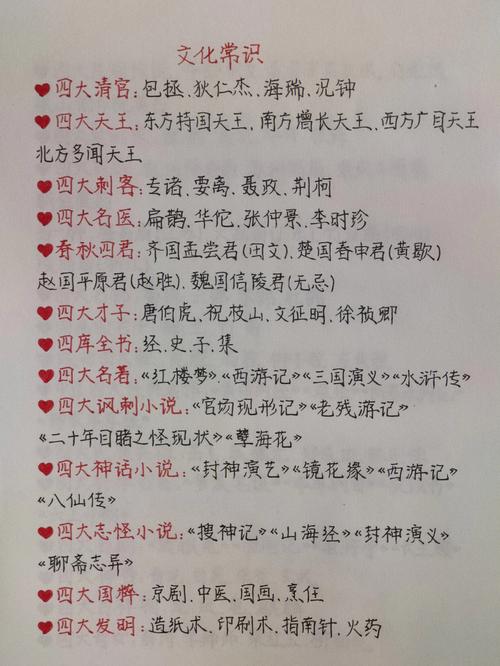 文化常识
♥四大清官:包拯、狄仁杰、海瑞、况钟
♥四大天王:东方持国天王、南方增长天王、西方广目天王
北方多闻天王
♥四大刺客:专诸、要离、聂政、荆柯
♥四大名医:扁鹊、华佗、张仲景、李时珍
♥春秋四君:齐国孟尝君(田文)、楚国春申君(黄歇)
赵国平原君(赵胜)、魏国信陵君(无忌)
♥四大才子:唐伯虎、祝枝山、文征明、徐祯卿
♥四库全书:经、史、子、集
♥四大名著:《红楼梦》、《西游记》《三国演义》《水浒传》
♥四大讽刺小说:《官场现形记》《老残游记》
《二十年目睹之怪现状》《孽海花》
♥四大神话小说:《封神演艺》《镜花缘》《西游记》
《八仙传》
♥四大志怪小说:《搜神记》《山海经》《封神演义》
《聊斋志异》
♥四大国粹:京剧、中医、国画、烹饪
♥四大发明:造纸术、印刷术、指南针、火药